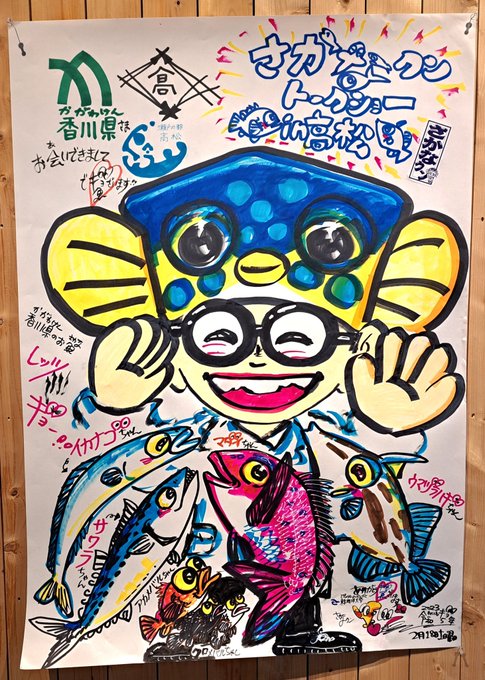 さかなクン
トークショー
in高松
高
かがわけん
香川県さま
瀬戸の都
高松
お会いできまして
でギョざいます
さかなクン
かがわけん
香川県のお魚
レッツ
ギョー
イカナゴちゃん
マダイちゃん
ウマヅラハギちゃん
サワラちゃん
アカメバルちゃん
クロメバルちゃん
2023
令和5年
2月18日